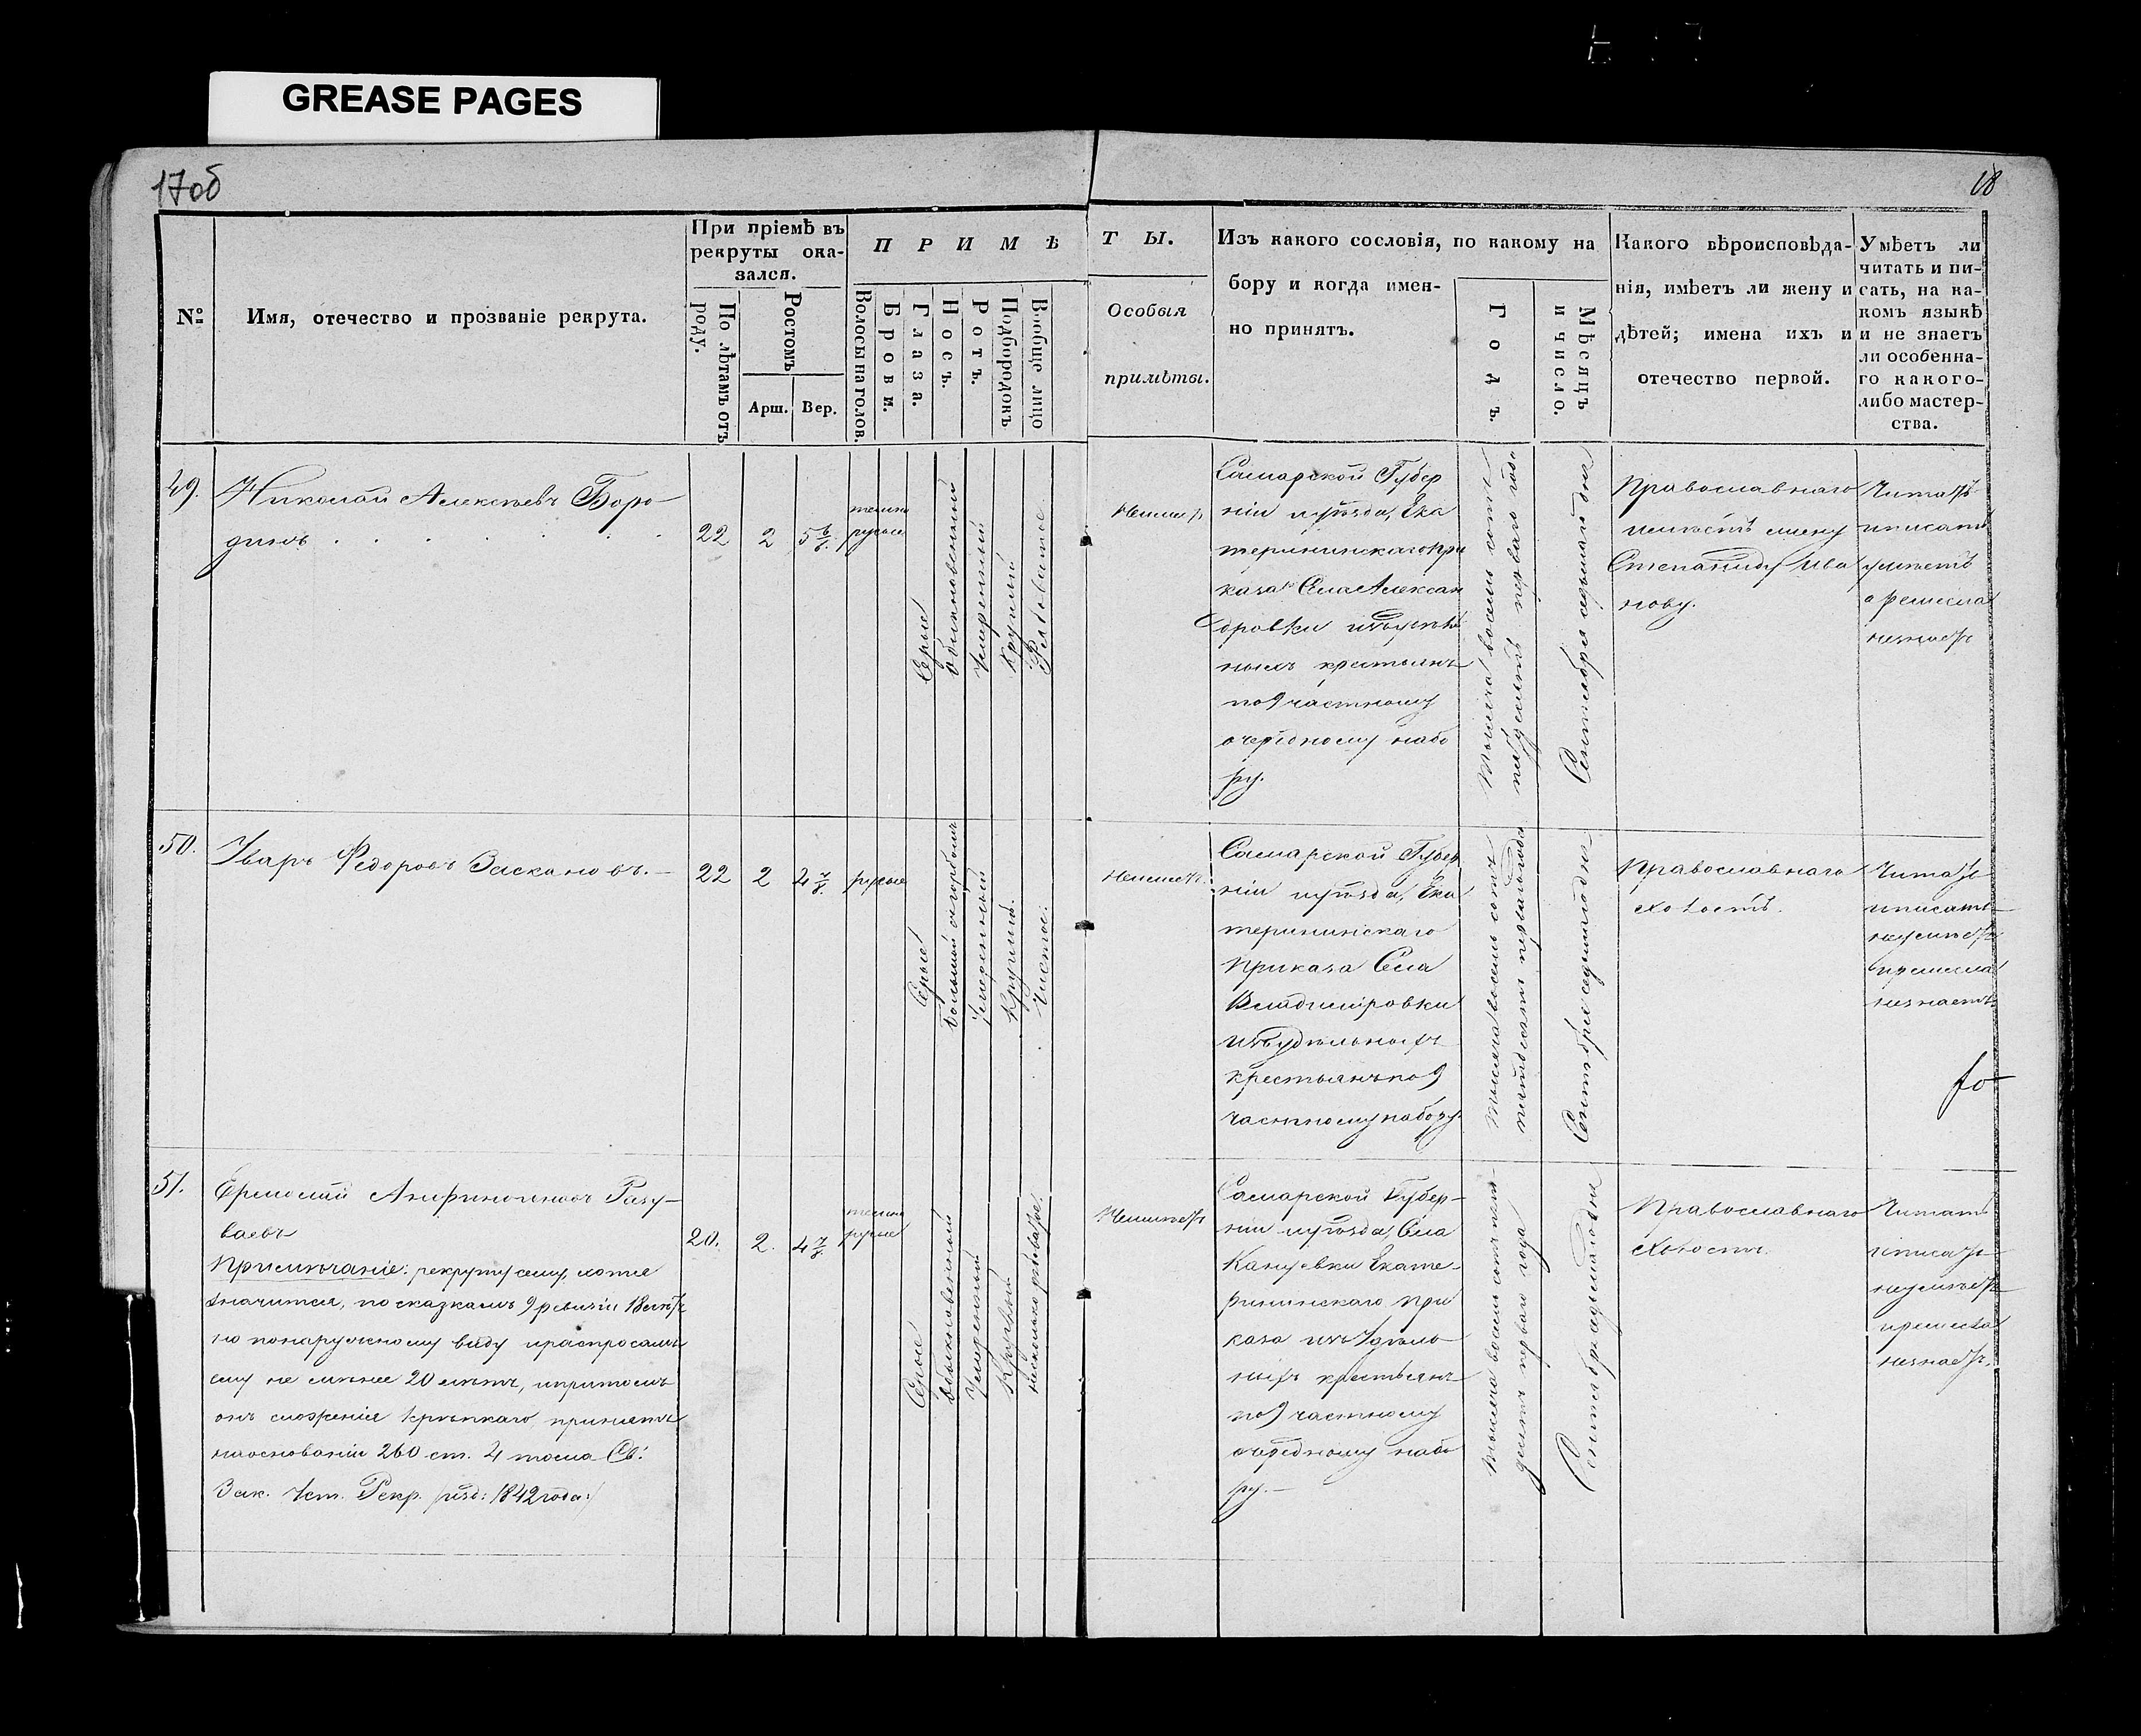 GREASE PAGES
17об
18
№
Имя, отечество и прозваніе рекрута.
При пріемѣ въ
рекруты ока-
зался.
По лѣтамъ отъ
роду.
Ростомъ
Арш.
Вер.
П Р И М Ѣ
Волосы на голов.
Брови.
Глаза.
Носъ.
Ротъ.
Подбородокъ
Вообще лицо
Т Ы.
Особыя
примѣты.
Изъ какого сословія, по какому на
бору и когда имен-
но принятъ.
Годъ.
Мѣсяцъ
и число.
Какого вѣроисповѣда-
нія, имѣетъ ли жену и
дѣтей; имена ихъ и
отечество первой.
Умѣетъ ли
читать и пи-
сать, на ка-
комъ языкѣ
и не знаетъ
ли особенна-
го какого-
либо мастер-
ства.
49.
Николай Алексѣевъ Боро
динъ
22
2
5 6/8
темно
русые
Сѣрые
Обыкновенный
Умѣренный
Круглый
Рябоватое
Неимѣетъ
Самарской Губер
ніи иуѣзда, Ека
терининскаго при
каза Села Алексан
дровки изъ удѣль
ныхъ крестьянъ
по 9 частному
очередному набо
ру.
Тысяча восемь сотъ
пятьдесятъ перваго года
Сентября седьмаго дня
Православнаго
имѣетъ жену
Степаниду Ива
нову.
Читать
иписать
умѣетъ
а ремесла
незнаетъ
50.
Уваръ Федоровъ Заскановъ.
22
2
4 7/8
русые
Сѣрые
Большой сгорбомъ
Умѣренный
Круглый.
Чистое.
Неимѣетъ.
Самарской Губер
ніи иуѣзда, Ека
терининскаго
Приказа Села
Владиміровки
изъ удѣльныхъ
крестьянъ по 9
частному набору.
Тысяча восемь сотъ
пятьдесятъ перваго года
Сентября седьмаго дня
Православнаго
холостъ.
Читать
иписать
неумѣетъ
иремесла
незнаетъ.
51.
Ермолай Анфиногеновъ Разу-
ваевъ
Примѣчаніе: рекрутъ сему, хотя
значится, по сказкамъ 9 ревизіи 18 лѣтъ
но понаружному виду ираспросамъ
ему не менѣе 20 лѣтъ, ипритомъ
онъ сложенія крѣпкаго, принятъ
наоснованіи 260 ст. 4 тома Св:
Зак. Уст. Рекр. (изд: 1842 года:)
20.
2.
4 7/8
темно
русые
Сѣрые
Обыкновенный
Умѣренный
Круглый
Нѣсколько рябоватое
Неимѣетъ
Самарской Губер-
ніи иуѣзда, Села
Кануевки Екате-
рининскаго при
каза изъ Удѣль
ныхъ крестьянъ
по 9 частному
очередному набо
ру.
Тысяча восемь сотъ пять
десятъ перваго года
Сентября седьмаго дня
Православнаго
холостъ.
Читать
иписать
неумѣетъ
иремесла
незнаетъ.